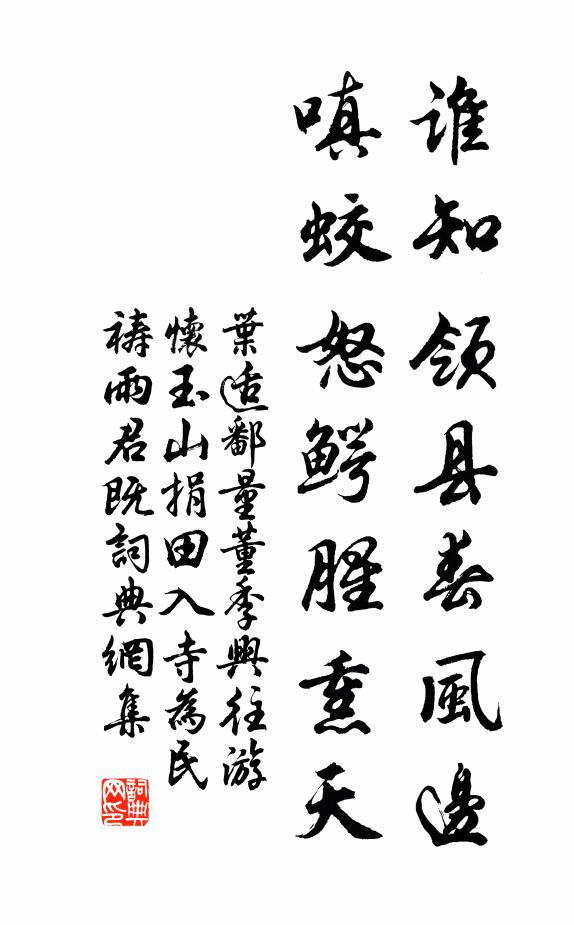 誰知領县春風邊
嗔蛟怒鳄腥熏天
葉适鄱量董季興往游
懷玉山捐田入寺為民
祷雨君既詞典網集
詞典网印